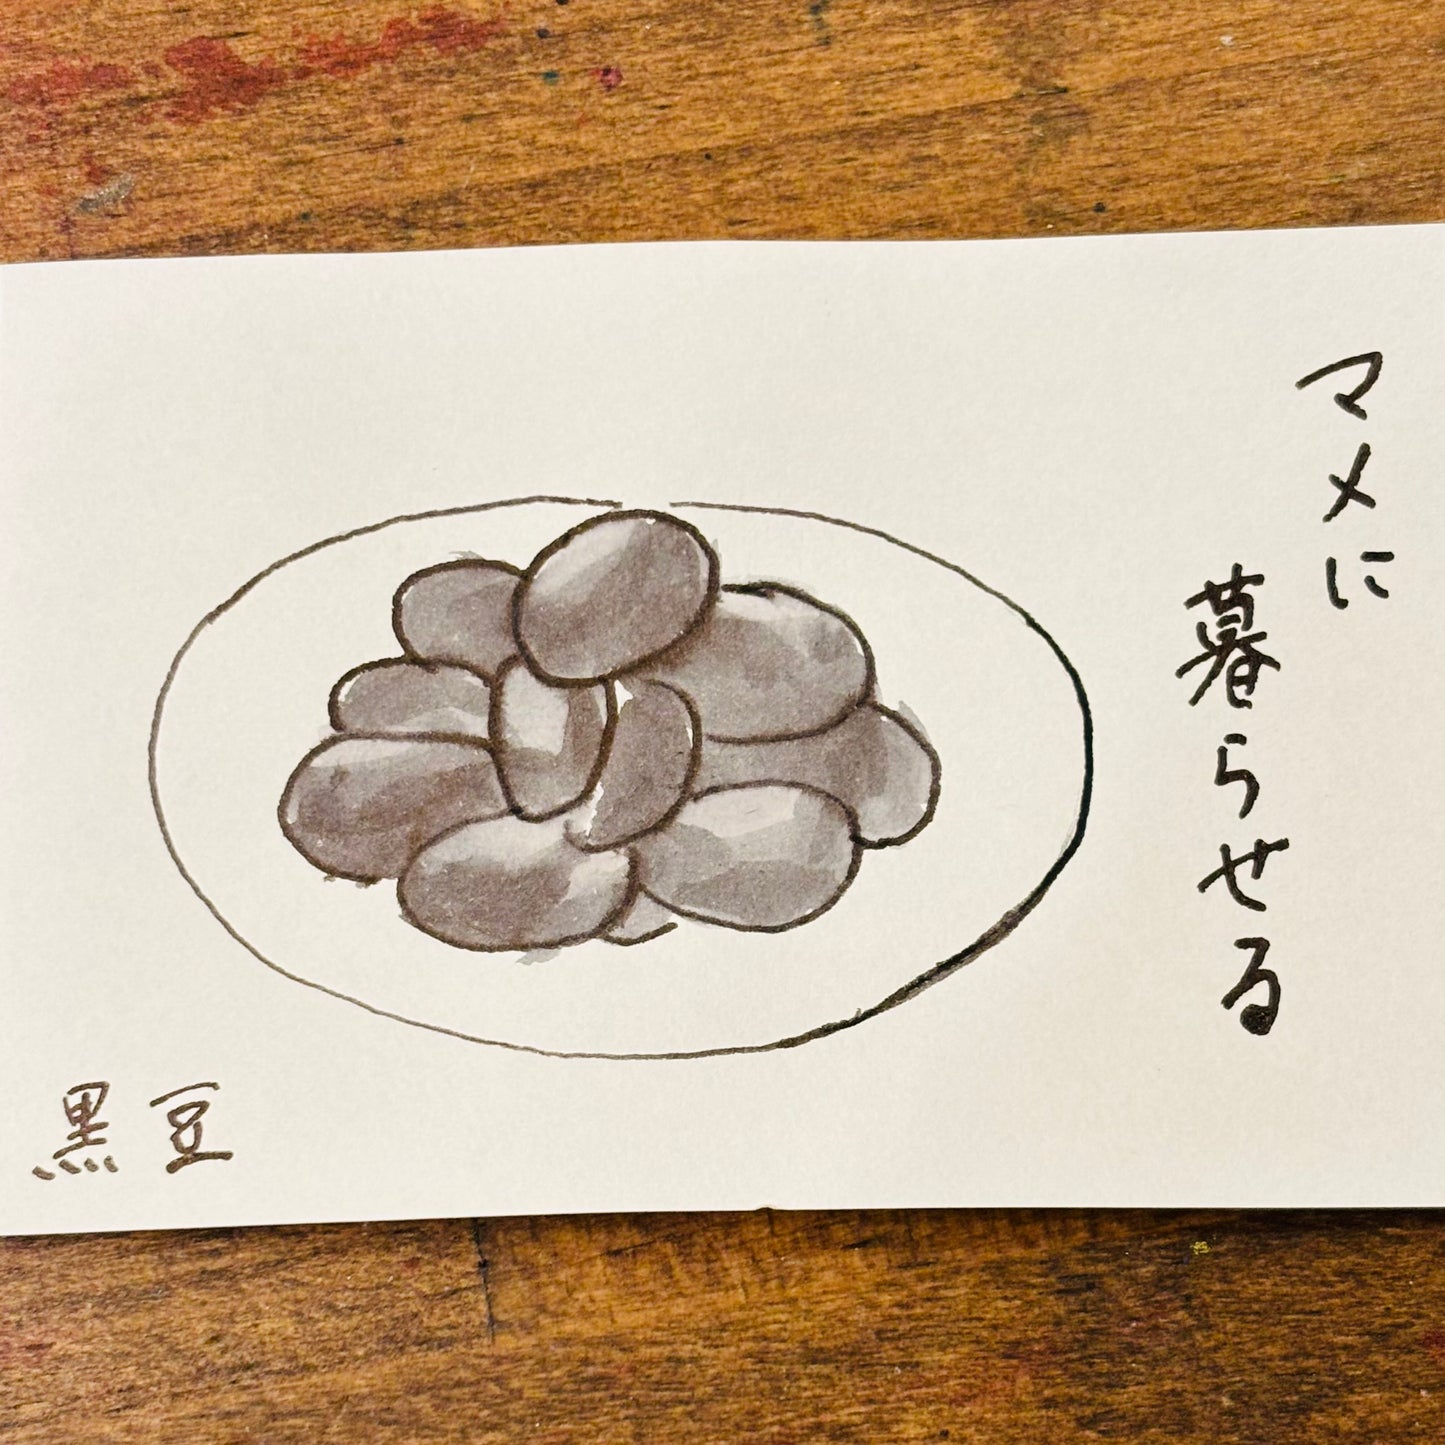 マメに
暮らせる
黒豆